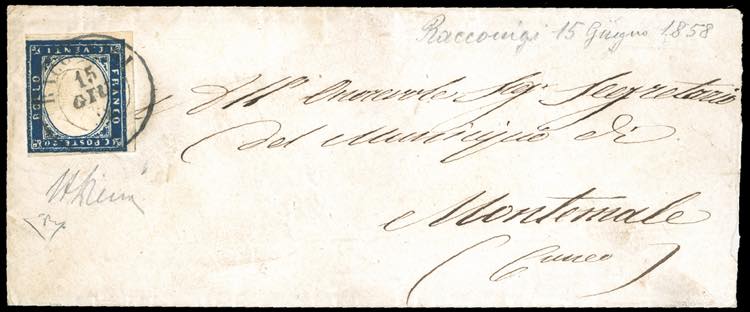 Racconigi 15 Giugno 1858
C. VENTI
BOLLO
FRANCO
C. POSTE 20
RACC
15
GIU
All' Onorevole Sig. Segretario
del Municipio di
Montemale
(Cuneo)